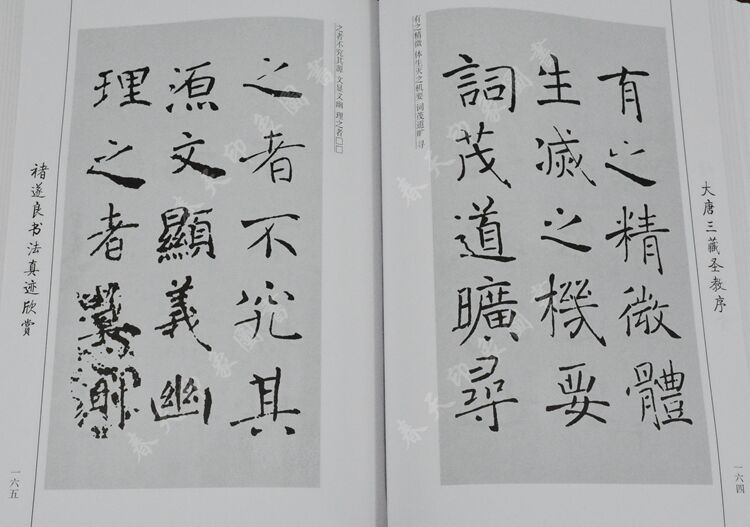 大唐三藏圣教序
一六四
有之精微體
生滅之機要
詞茂道曠尋
有之精微 体生灭之机要 词茂道旷 寻
之者不究其
源文顯義幽
理之者
之者不究其源 文显义幽 理之者□□
褚遂良书法真迹欣赏
一六五
春天印象圖書
春天印象圖書